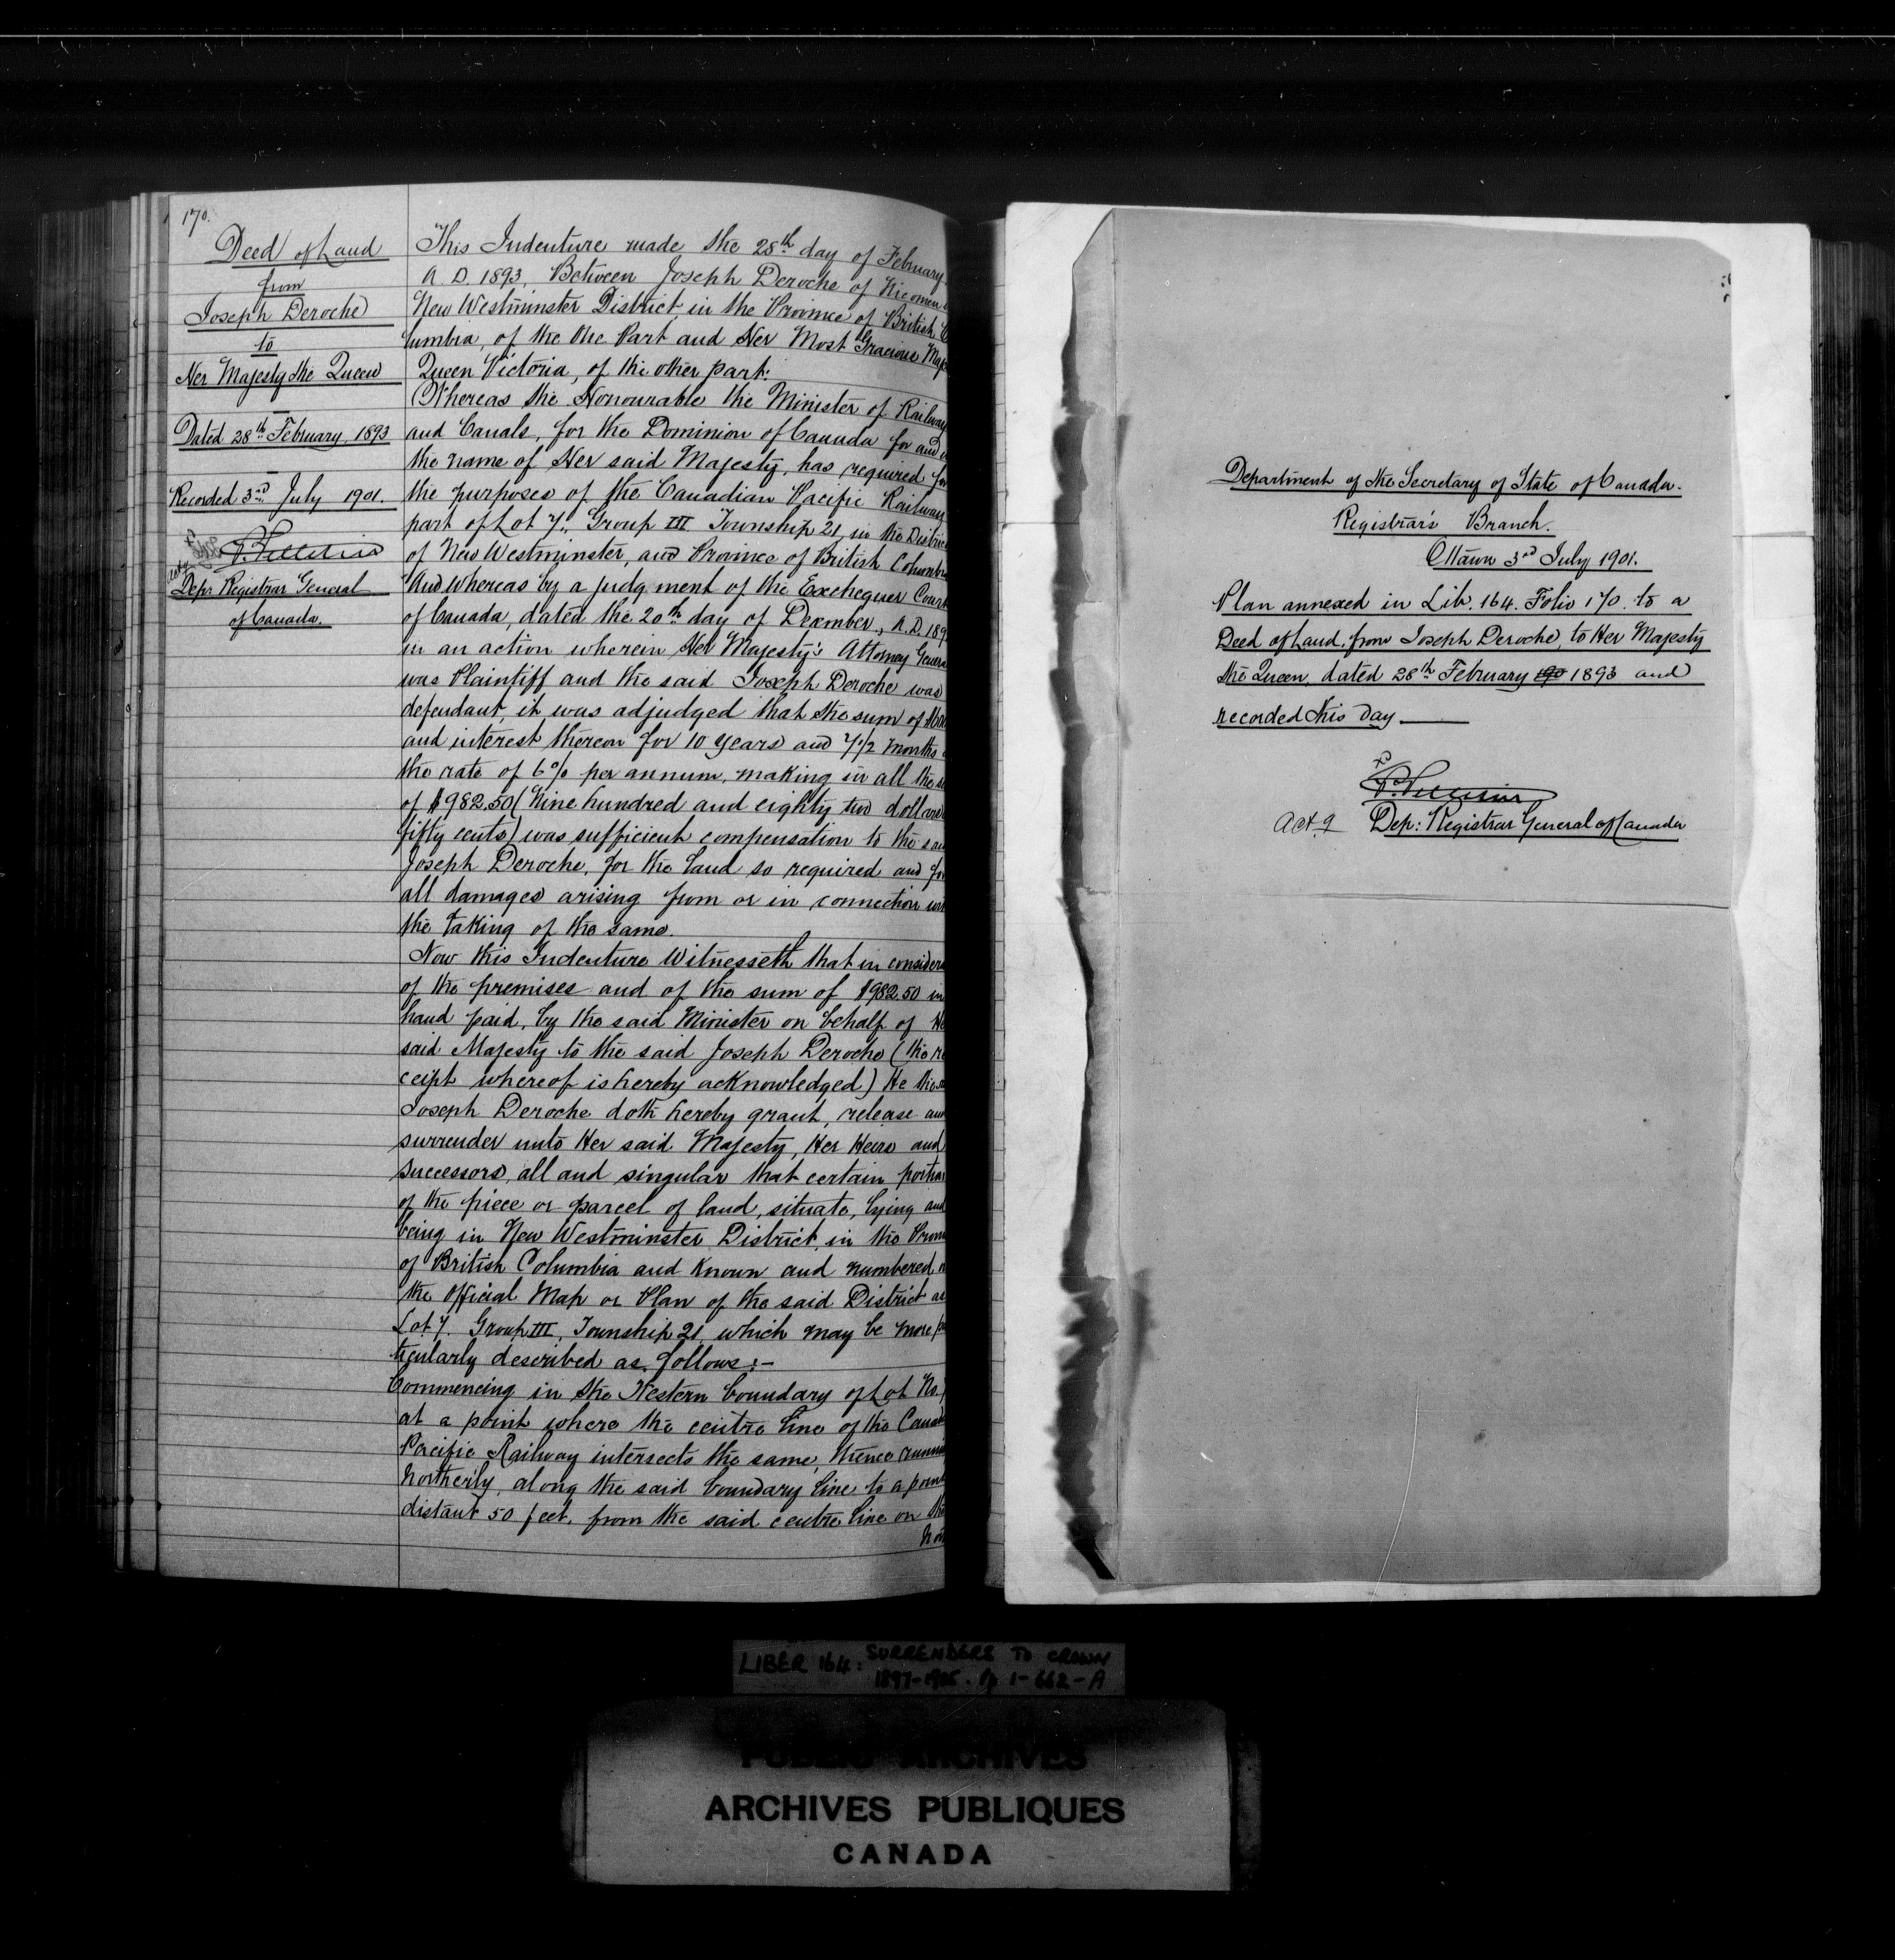 170.
Deed of Land
from
Joseph Deroche
to
Her Majesty the Queen
Dated 28th February, 1893
Recorded 3rd July 1901.
P. Pelletier
Depr Registrar General
of Canada.
This Indenture made the 28th day of February
A. D. 1893, Between Joseph Deroche of Nicomen
New Westminster District, in the Province of British
lumbia, of the One Part and Her Most Gracious
Queen Victoria, of the other part:
Whereas the Honourable the Minister of Railway
and Canals, for the Dominion of Canada for and
the name of Her said Majesty, has required for
the purposes of the Canadian Pacific Railway
part of Lot 7. Group III Township 21, in the District
of New Westminster, and Province of British Columbia
And whereas by a judgment of the Exchequer Court
of Canada, dated the 20th day of December, A.D. 189
in an action wherein Her Majesty's Attorney General
was Plaintiff and the said Joseph Deroche was
defendant, it was adjudged that the sum of
and interest thereon for 10 years and 7½ months
the rate of 6% per annum, making in all the
of $982.50 (Nine hundred and eighty two dollars
fifty cents) was sufficient compensation to the
Joseph Deroche, for the land so required and for
all damages arising from or in connection
the taking of the same.
Now this Indenture Witnesseth that in consider
of the premises and of the sum of $982.50 in
hand paid, by the said Minister on behalf of
said Majesty to the said Joseph Deroche (the re
ceipt whereof is hereby acknowledged) He the
Joseph Deroche doth hereby grant, release and
surrender unto Her said Majesty, Her Heirs and
successors, all and singular that certain portion
of the piece or parcel of land, situate, lying and
being in New Westminster District, in the Prov
of British Columbia and known and numbered
the Official Map or Plan of the said District as
Lot 7. Group III, Township 21, which may be more
ticularly described as follows:—
Commencing in the Western boundary of Lot No.
at a point where the centre line of the
Pacific Railway intersects the same, thence
Northerly, along the said boundary line to a point
distant 50 feet, from the said centre line on the
Nor
Department of the Secretary of State of Canada.
Registrar's Branch.
Ottawa 3rd July 1901.
Plan annexed in Lib. 164. Folio 170. to a
Deed of Land, from Joseph Deroche, to Her Majesty
the Queen, dated 28th February 190 1893 and
recorded this day
P. Pelletier
Act.g Dep: Registrar General of Canada
LIBER 164: SURRENDERS TO CROWN
1897-1905. Pp 1-662-A
PUBLIC ARCHIVES
ARCHIVES PUBLIQUES
CANADA